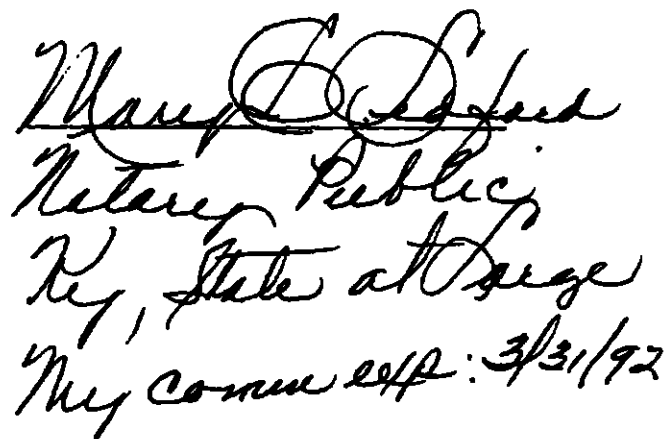 Mary
Notary Public
Ky, State at Large
My comm exp: 3/31/92